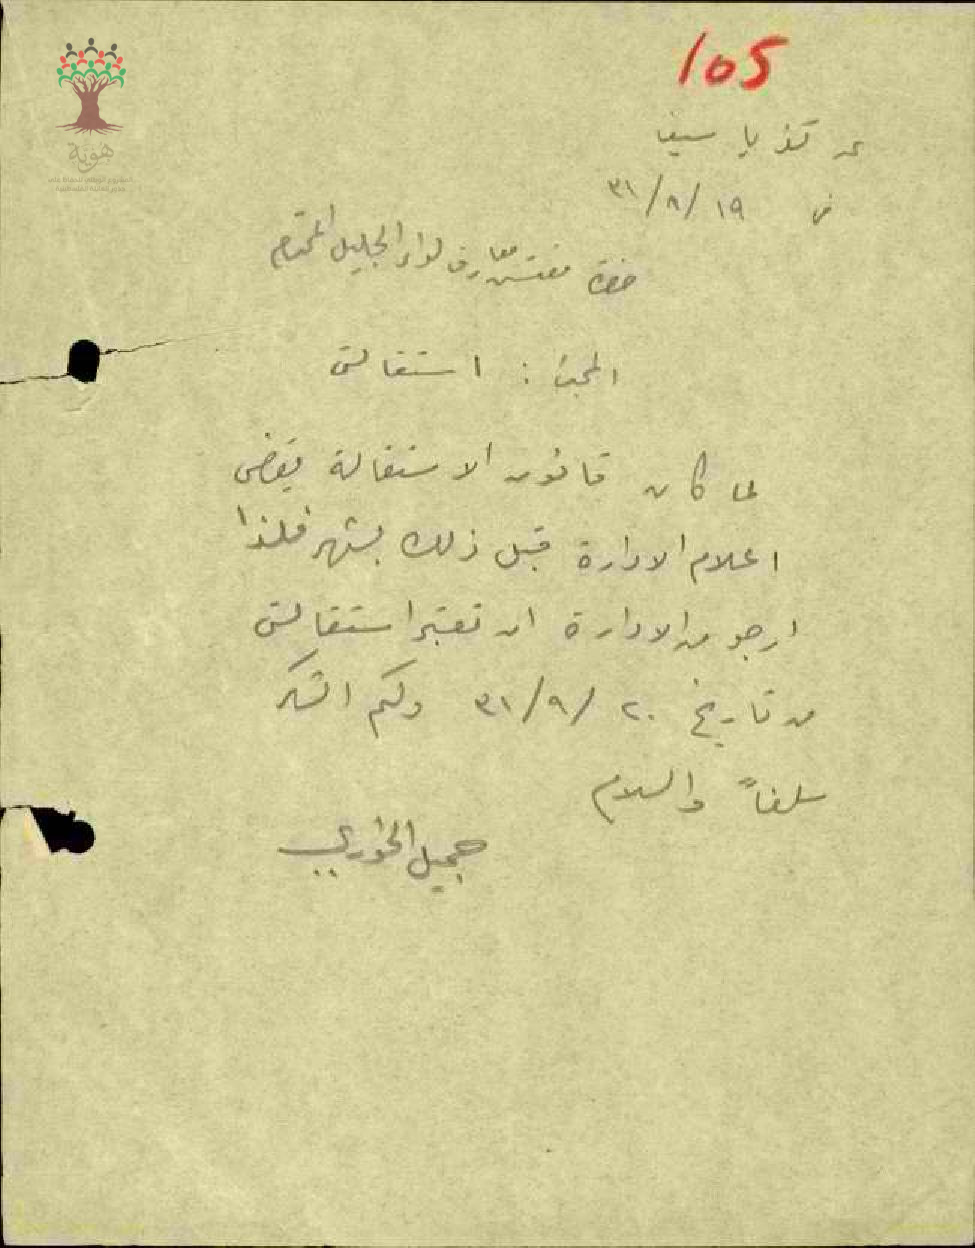 105
عن كفر ياسيف
في ١٩/٨/٣١
حضرة مفتش معارف لواء الجليل المحترم
المبحث : استقالتي
لما كان قانون الاستقالة يقضي
اعلام الادارة قبل ذلك بشهر فلذا
ارجو من الادارة ان تعتبر استقالتي
من تاريخ ٢٠/٩/٣١ ولكم الشكر
سلفاً والسلام
جميل الخوري
هوية